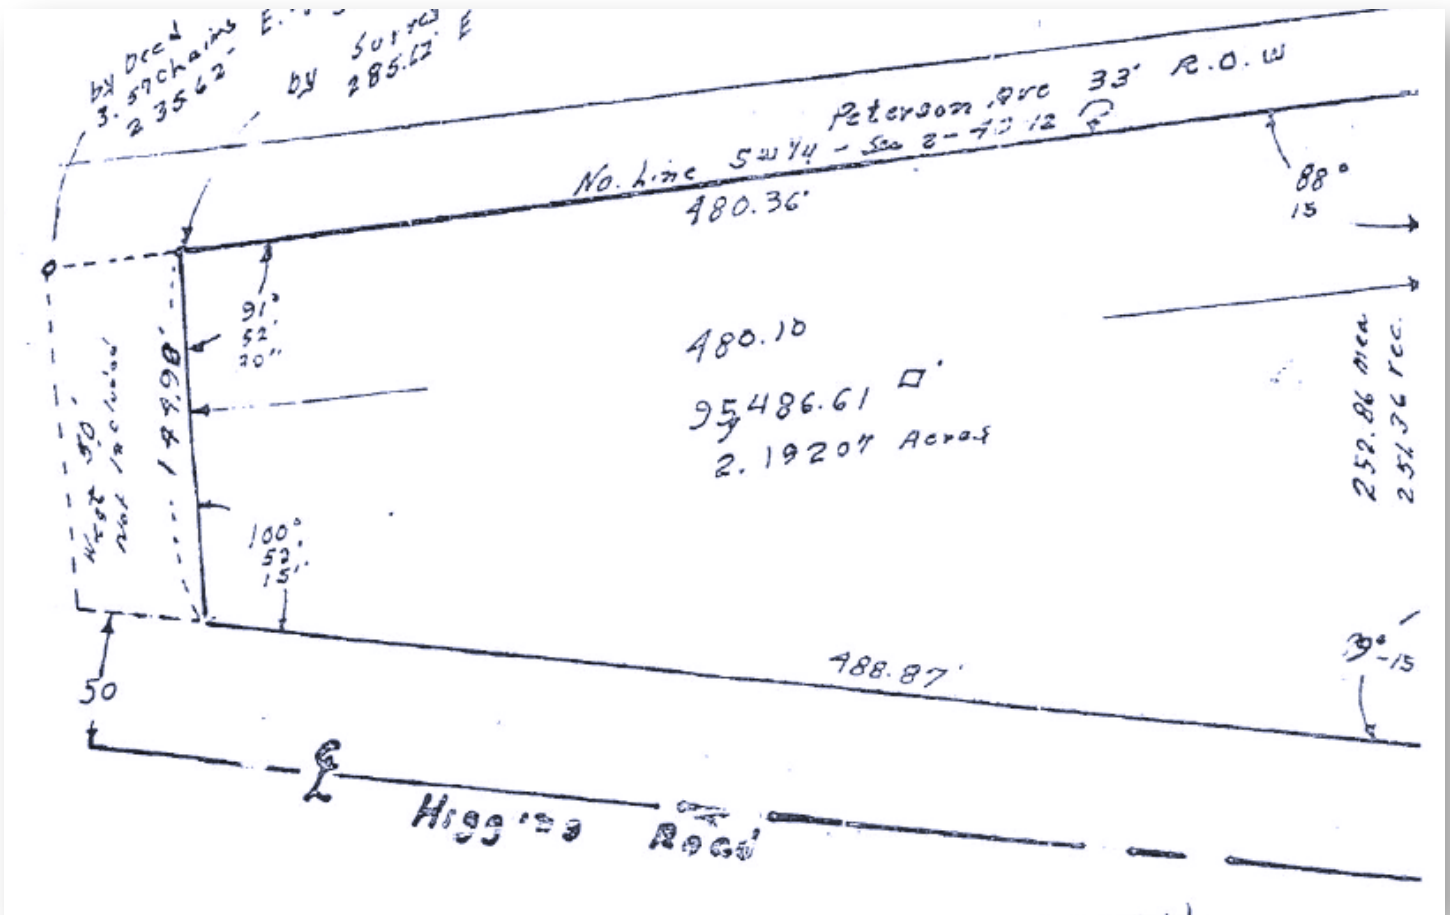 by Deed
3.57 chains E.
235.62'
by
285.62' E
Peterson Ave 33' R.O.W
No. Line SW 1/4 - Sec 2-40-12
480.36'
88°
15
91°
52'
20"
144.98'
West 50'
Not Included
480.10
95,486.61 □'
2.19207 Acres
252.86 mea
251.36 rec.
100°
52'
15"
-15
488.87'
50
℄ Higgins Road